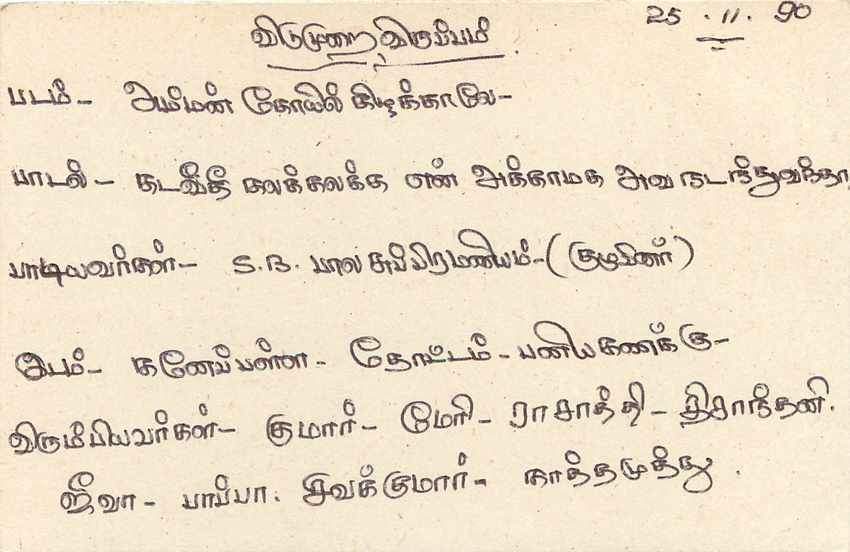 25.11.90
விடுமுறை விருப்பம்
படம் - அம்மன் கோயில் கிழக்காலே -
பாடல் - கடவீதி கலகலக்க என் அக்காமக அவ நடந்துவந்தா
பாடியவர்கள் - S.B. பாலசுப்பிரமணியம் - (குழுவினர்)
இடம் - கனேபள்ள - தோட்டம் - பணியகணக்கு -
விரும்பியவர்கள் - குமார் - மேரி - ராசாத்தி - திசாந்தனி.
ஜீவா - பாப்பா. சிவக்குமார் - காத்தமுத்து.